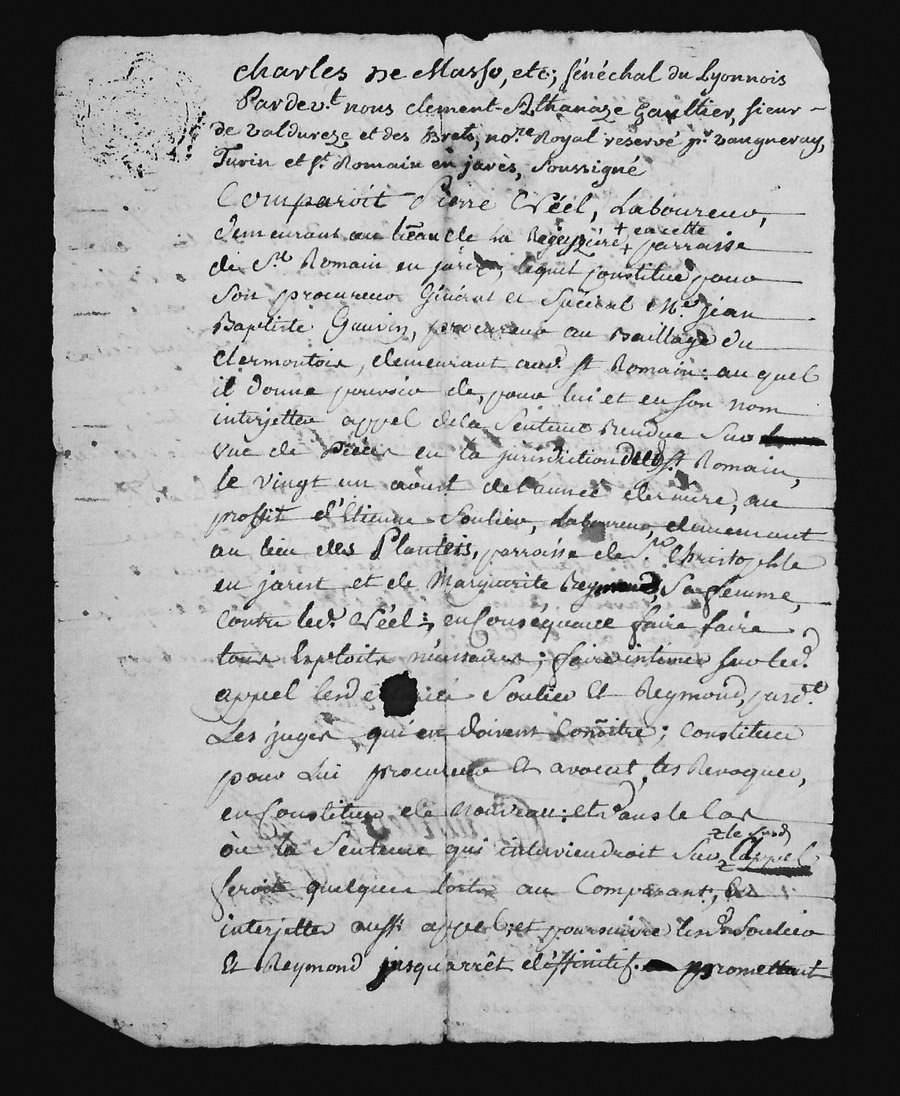 Charles De Masso, etc; sénéchal du Lyonnois
Pardevt. nous clement Athanaze Gaultier, sieur
de valdureze et des Brets, nore. Royal reservé pr. vaugneray,
Turin et st. Romain en jarès, soussigné
Comparoit Pierre Créel, Laboureur,
demeurant au lieu de la + en cette + parroisse
de St. Romain en jarez, lequel constitue pour
son procureur Général et spécial Me. jean
Baptiste Gauvin, procureur au Bailliage du
clermontois, demeurant aud. st Romain: auquel
il donne pouvoir de, pour lui et en son nom
interjetter appel dela sentence Rendue sur
vue de pièces en la jurisdiction dud. st Romain,
le vingt un aoust del'année derniere, au
proffit d'Etienne Soulier, Laboureur, demeurant
au lieu des Plantets, parroisse de St. Christophle
en jarest et de Marguerite Reymond, sa femme,
contre led. Créel:, en Consequance faire faire
tous Exploits nécessaires; faire intimer sur led.
appel lesd Soulier Et Reymond, pardt.
Les juges qui en doivent Conoitre; Constituer
pour Lui procureur Et avocat, les Revoquer,
en Constituer de nouveau: et dans le Cas
où la Sentence qui interviendroit sur le susd Appel
feroit quelques torts au Comparant, En
interjetter aussi appel; et poursuivre lesd. Soulier
Et Reymond jusqu'arrêt déffinitif. promettant